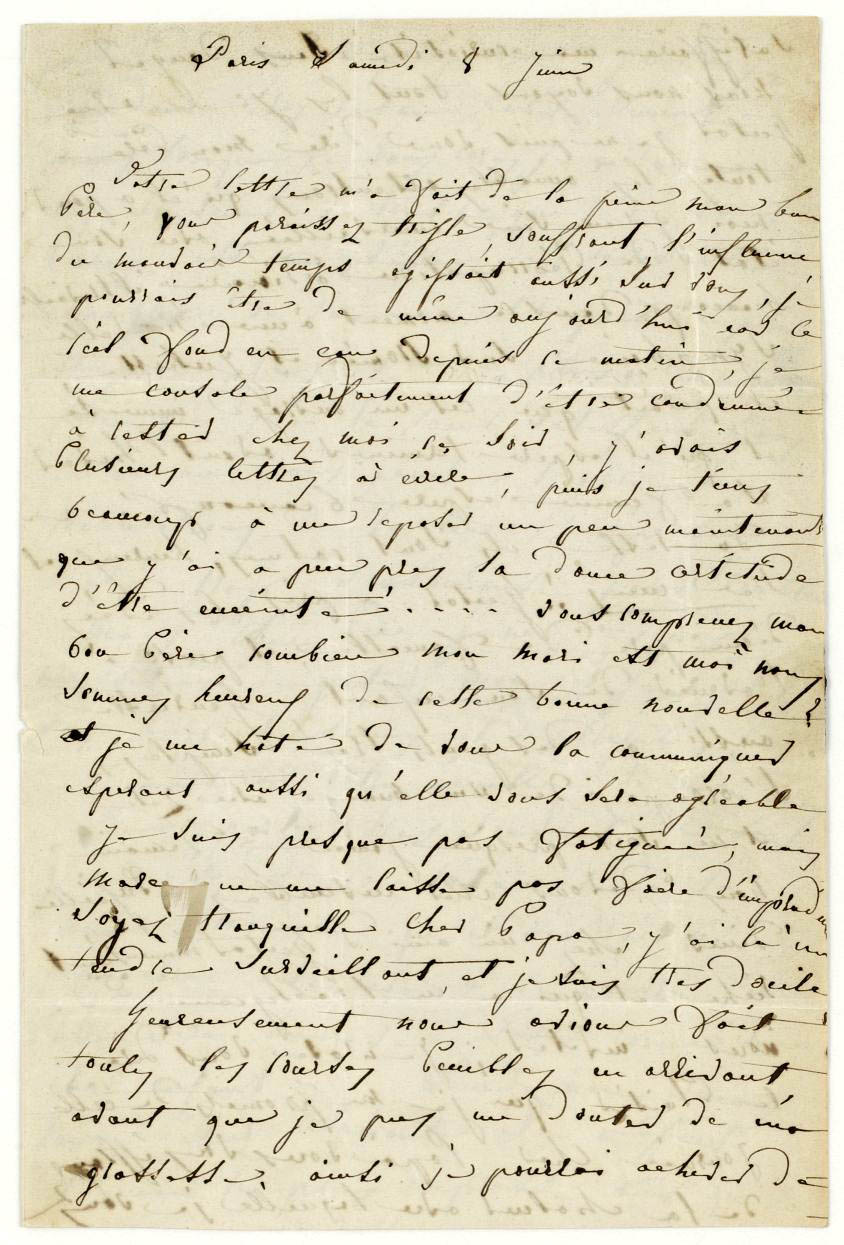 Paris Samedi 8 Juin
Votre lettre m'a fait de la peine mon bon
Père, vous paraissez triste, souffrant l'influence
du mauvais temps agissait aussi sur vous, je
pourrais être de même aujourd'hui car le
ciel fond en eau depuis ce matin, je
me console parfaitement d'être condamnée
à rester chez moi ce soir, j'avais
plusieurs lettres à écrire, puis je tiens
beaucoup à me reposer un peu maintenant
que j'ai a peu pres la douce certitude
d'être enceinte! .... vous comprenez mon
bon Père combien mon mari et moi nous
sommes heureux de cette bonne nouvelle
et je me hâte de vous la communiquer
esperant aussi qu'elle vous sera agréable
je suis presque pas fatiguée, mais
ne me laisse pas faire d'imprudence
soyez tranquille cher Papa, j'ai là un
tendre surveillant, et je suis tres docile
Heureusement nous avions fait
toutes les courses penibles en arrivant
avant que je pus me douter de ma
grossesse, ainsi je pourrai achever de